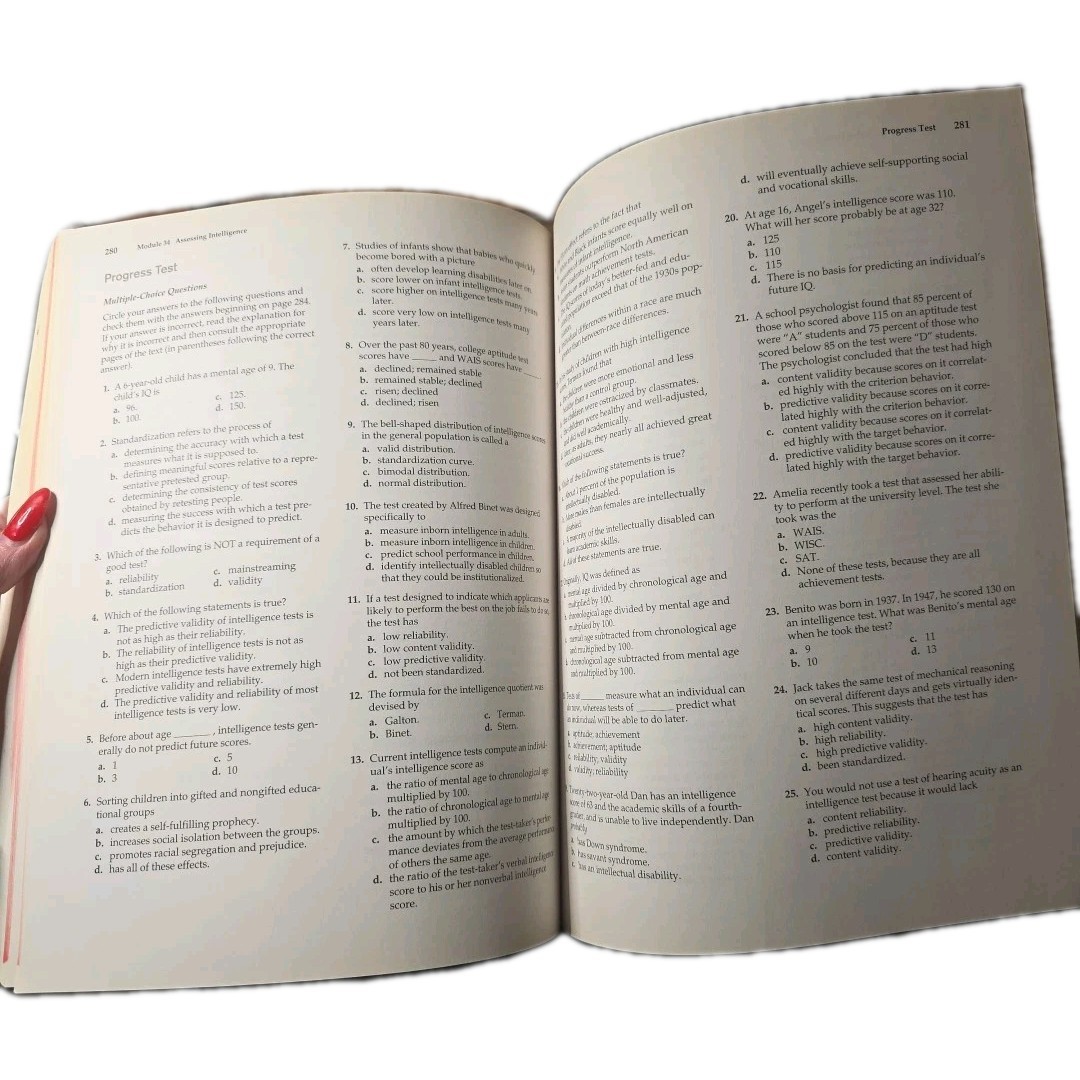 280
Module 34 Assessing Intelligence
Progress Test
Multiple-Choice Questions
Circle your answers to the following questions and
check them with the answers beginning on page 284.
If your answer is incorrect, read the explanation for
why it is incorrect and then consult the appropriate
pages of the text (in parentheses following the correct
answer).
1. A 6-year-old child has a mental age of 9. The
child's IQ is
a. 96. c. 125.
b. 100. d. 150.
2. Standardization refers to the process of
a. determining the accuracy with which a test
measures what it is supposed to.
b. defining meaningful scores relative to a repre-
sentative pretested group.
c. determining the consistency of test scores
obtained by retesting people.
d. measuring the success with which a test pre-
dicts the behavior it is designed to predict.
3. Which of the following is NOT a requirement of a
good test?
a. reliability c. mainstreaming
b. standardization d. validity
4. Which of the following statements is true?
a. The predictive validity of intelligence tests is
not as high as their reliability.
b. The reliability of intelligence tests is not as
high as their predictive validity.
c. Modern intelligence tests have extremely high
predictive validity and reliability.
d. The predictive validity and reliability of most
intelligence tests is very low.
5. Before about age ______, intelligence tests gen-
erally do not predict future scores.
a. 1 c. 5
b. 3 d. 10
6. Sorting children into gifted and nongifted educa-
tional groups
a. creates a self-fulfilling prophecy.
b. increases social isolation between the groups.
c. promotes racial segregation and prejudice.
d. has all of these effects.
7. Studies of infants show that babies who quickly
become bored with a picture
a. often develop learning disabilities later on.
b. score lower on infant intelligence tests.
c. score higher on intelligence tests many years
later.
d. score very low on intelligence tests many
years later.
8. Over the past 80 years, college aptitude test
scores have ____ and WAIS scores have ____
a. declined; remained stable
b. remained stable; declined
c. risen; declined
d. declined; risen
9. The bell-shaped distribution of intelligence scores
in the general population is called a
a. valid distribution.
b. standardization curve.
c. bimodal distribution.
d. normal distribution.
10. The test created by Alfred Binet was designed
specifically to
a. measure inborn intelligence in adults.
b. measure inborn intelligence in children.
c. predict school performance in children.
d. identify intellectually disabled children so
that they could be institutionalized.
11. If a test designed to indicate which applicants are
likely to perform the best on the job fails to do so,
the test has
a. low reliability.
b. low content validity.
c. low predictive validity.
d. not been standardized.
12. The formula for the intelligence quotient was
devised by
a. Galton. c. Terman.
b. Binet. d. Stern.
13. Current intelligence tests compute an individ-
ual's intelligence score as
a. the ratio of mental age to chronological age
multiplied by 100.
b. the ratio of chronological age to mental age
multiplied by 100.
c. the amount by which the test-taker's perfor-
mance deviates from the average performance
of others the same age.
d. the ratio of the test-taker's verbal intelligence
score to his or her nonverbal intelligence
score.
Progress Test 281
refers to the fact that
and Black infants score equally well on
of infant intelligence.
students outperform North American
on math achievement tests.
of today's better-fed and edu-
population exceed that of the 1930s pop-
differences within a race are much
than between-race differences.
study of children with high intelligence
Terman found that
children were more emotional and less
healthy than a control group.
children were ostracized by classmates.
children were healthy and well-adjusted,
and did well academically.
as adults, they nearly all achieved great
success.
of the following statements is true?
percent of the population is
intellectually disabled.
More males than females are intellectually
disabled.
A majority of the intellectually disabled can
learn academic skills.
All of these statements are true.
Originally, IQ was defined as
mental age divided by chronological age and
multiplied by 100.
chronological age divided by mental age and
multiplied by 100.
mental age subtracted from chronological age
and multiplied by 100.
chronological age subtracted from mental age
and multiplied by 100.
Tests of ____ measure what an individual can
do now, whereas tests of ______ predict what
an individual will be able to do later.
aptitude; achievement
achievement; aptitude
reliability; validity
validity; reliability
Twenty-two-year-old Dan has an intelligence
score of 63 and the academic skills of a fourth-
grader, and is unable to live independently. Dan
probably
has Down syndrome.
has savant syndrome.
has an intellectual disability.
d. will eventually achieve self-supporting social
and vocational skills.
20. At age 16, Angel's intelligence score was 110.
What will her score probably be at age 32?
a. 125
b. 110
c. 115
d. There is no basis for predicting an individual's
future IQ.
21. A school psychologist found that 85 percent of
those who scored above 115 on an aptitude test
were "A" students and 75 percent of those who
scored below 85 on the test were "D" students.
The psychologist concluded that the test had high
a. content validity because scores on it correlat-
ed highly with the criterion behavior.
b. predictive validity because scores on it corre-
lated highly with the criterion behavior.
c. content validity because scores on it correlat-
ed highly with the target behavior.
d. predictive validity because scores on it corre-
lated highly with the target behavior.
22. Amelia recently took a test that assessed her abili-
ty to perform at the university level. The test she
took was the
a. WAIS.
b. WISC.
c. SAT.
d. None of these tests, because they are all
achievement tests.
23. Benito was born in 1937. In 1947, he scored 130 on
an intelligence test. What was Benito's mental age
when he took the test?
a. 9 c. 11
b. 10 d. 13
24. Jack takes the same test of mechanical reasoning
on several different days and gets virtually iden-
tical scores. This suggests that the test has
a. high content validity.
b. high reliability.
c. high predictive validity.
d. been standardized.
25. You would not use a test of hearing acuity as an
intelligence test because it would lack
a. content reliability.
b. predictive reliability.
c. predictive validity.
d. content validity.